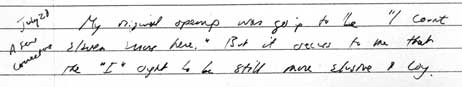 July 28 My original opening was going to be "I count
A few connections eleven [...] here." But it occurs to me that
the "I" ought to be still more elusive & coy.